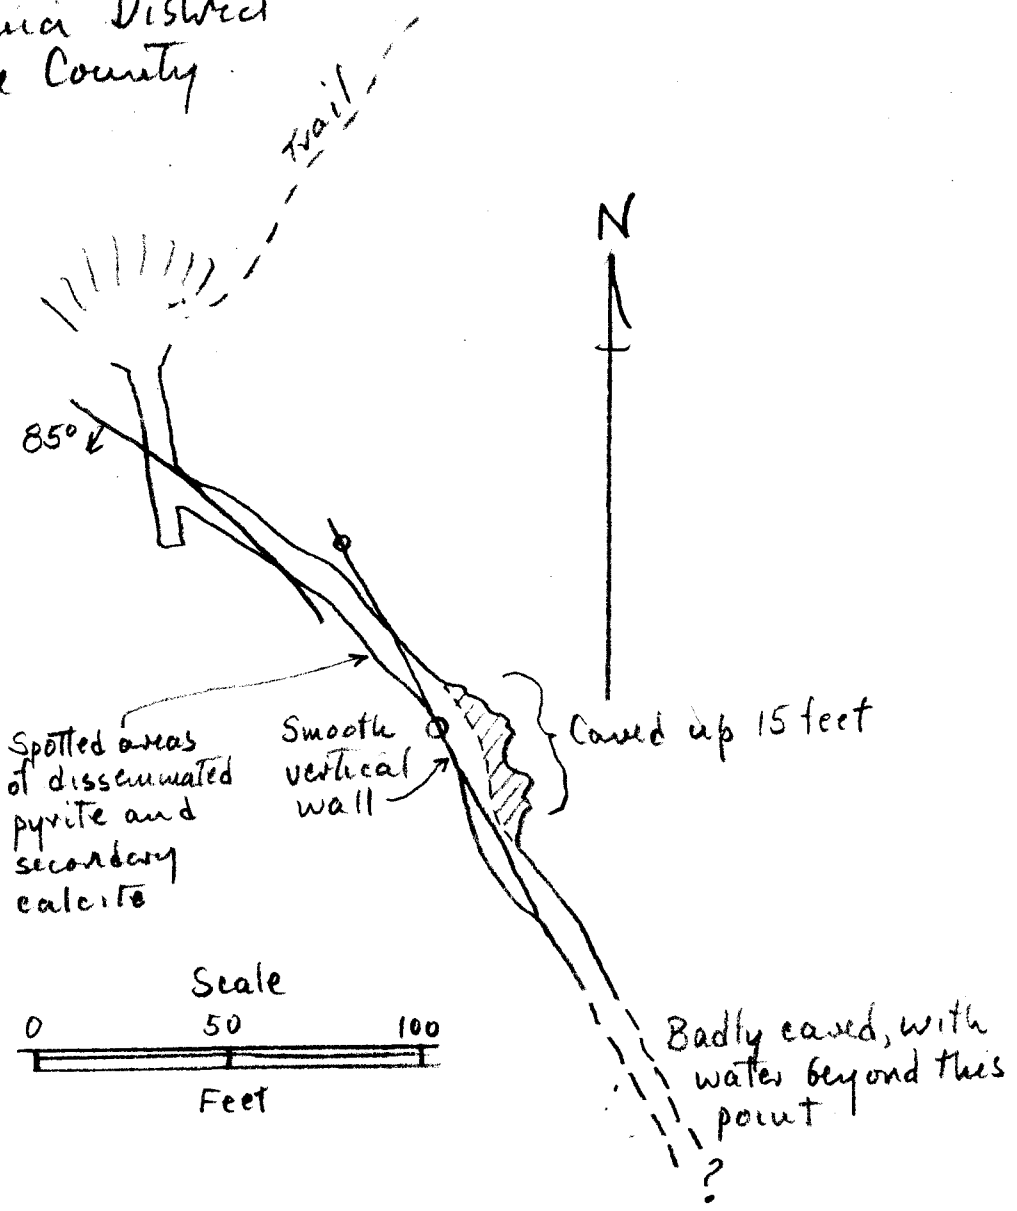 District
County
Trail
N
85°
Spotted areas
of disseminated
pyrite and
secondary
calcite
Smooth
vertical
wall
Caved up 15 feet
Scale
0 50 100
Feet
Badly caved, with
water beyond this
point
?